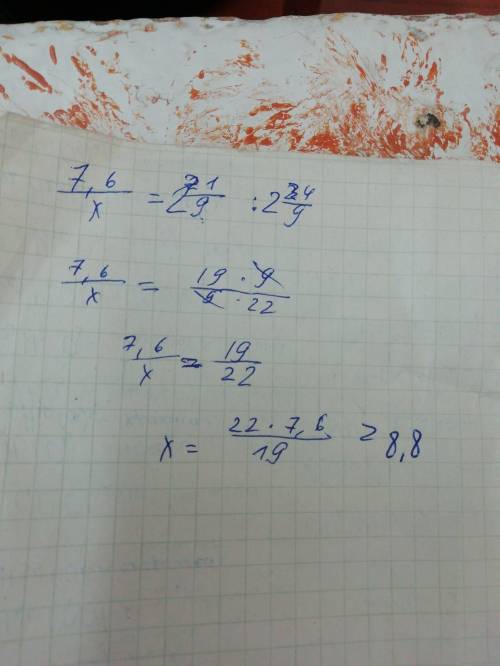 7,6/x = 2 1/9 : 2 4/9
7,6/x = 19 · 9 / 9 · 22
7,6/x = 19/22
x = 22 · 7,6 / 19 = 8,8